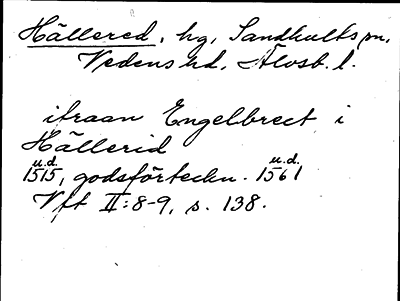 Hällered, hg, Sandhults sn,
Vedens hd, Älvsb. l.
ifraan Engelbrect i
Hällerid
u.d. u.d.
1515, godsförteckn. 1561
Vft II:8-9, s. 138.